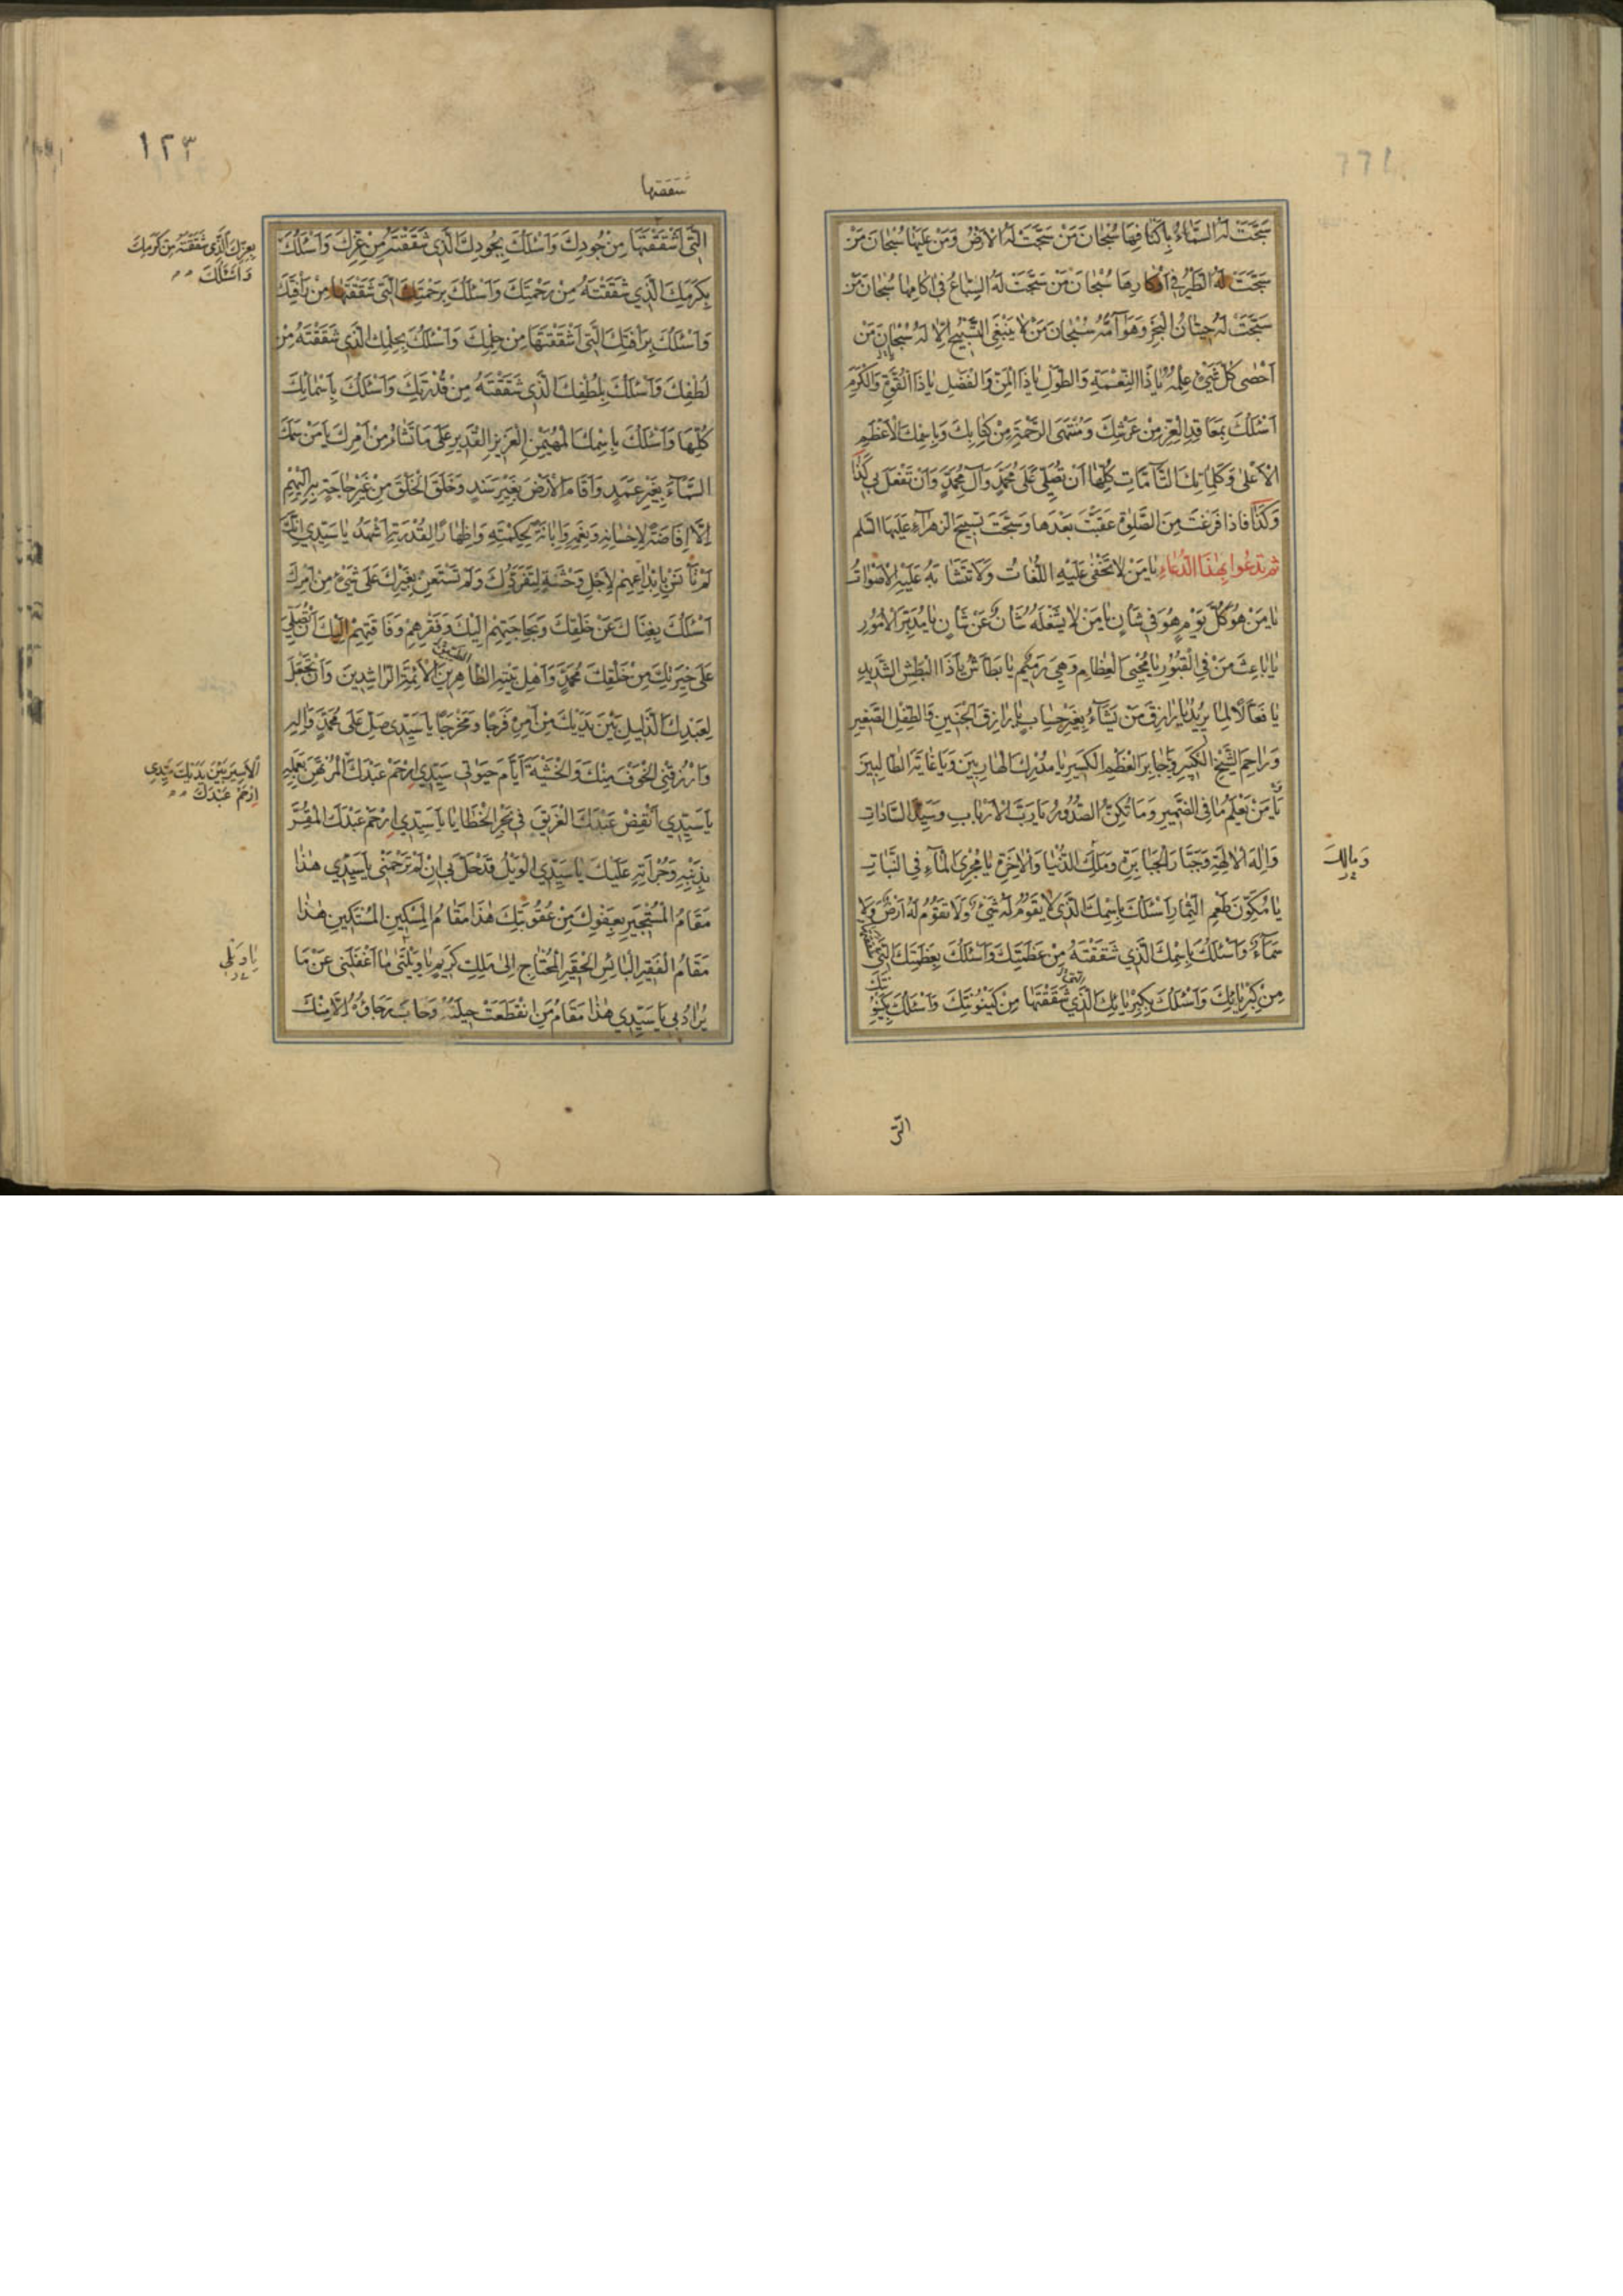 سَبَّحَتْ لَهُ السَّمَاءُ بِاَكْنَافِهَا سُبْحَانَ مَنْ سَبَّحَتْ لَهُ الْاَرْضُ وَمَنْ عَلَيْهَا سُبْحَانَ مَنْ
سَبَّحَتْ لَهُ الطَّيْرُ فِي اَوْكَارِهَا سُبْحَانَ مَنْ سَبَّحَتْ لَهُ السِّبَاعُ فِي اٰكَامِهَا سُبْحَانَ مَنْ
سَبَّحَتْ لَهُ حِيتَانُ الْبَحْرِ وَهَوَامُّهُ سُبْحَانَ مَنْ لَا يَنْبَغِي التَّسْبِيحُ اِلَّا لَهُ سُبْحَانَ مَنْ
اَحْصٰى كُلَّ شَيْءٍ عِلْمُهُ يَا ذَا النِّعْمَةِ وَالطَّوْلِ يَا ذَا الْمَنِّ وَالْفَضْلِ يَا ذَا الْقُوَّةِ وَالْكَرَمِ
اَسْئَلُكَ بِمَعَاقِدِ الْعِزِّ مِنْ عَرْشِكَ وَمُنْتَهَى الرَّحْمَةِ مِنْ كِتَابِكَ وَبِاسْمِكَ الْاَعْظَمِ
الْاَعْلٰى وَكَلِمَاتِكَ التَّامَّاتِ كُلِّهَا اَنْ تُصَلِّيَ عَلٰى مُحَمَّدٍ وَاٰلِ مُحَمَّدٍ وَاَنْ تَفْعَلَ بِي كَذَا
وَكَذَا فَاِذَا فَرَغْتَ مِنَ الصَّلٰوةِ عَقَّبْتَ بَعْدَهَا وَسَبَّحْتَ تَسْبِيحَ الزَّهْرَاءِ عَلَيْهَا السَّلم
ثم تدعوا بهذا الدعاء يَا مَنْ لَا تَخْفٰى عَلَيْهِ اللُّغَاتُ وَلَا تَتَشَابَهُ عَلَيْهِ الْاَصْوَاتُ
يَا مَنْ هُوَ كُلَّ يَوْمٍ هُوَ فِي شَاْنٍ يَا مَنْ لَا يَشْغَلُهُ شَاْنٌ عَنْ شَاْنٍ يَا مُدَبِّرَ الْاُمُورِ
يَا بَاعِثَ مَنْ فِي الْقُبُورِ يَا مُحْيِيَ الْعِظَامِ وَهِيَ رَمِيمٌ يَا بَطَّاشُ يَا ذَا الْبَطْشِ الشَّدِيدِ
يَا فَعَّالًا لِمَا يُرِيدُ يَا رَازِقَ مَنْ يَشَآءُ بِغَيْرِ حِسَابٍ يَا رَازِقَ الْجَنِينِ وَالطِّفْلِ الصَّغِيرِ
وَرَاحِمَ الشَّيْخِ الْكَبِيرِ وَيَا جَابِرَ الْعَظْمِ الْكَسِيرِ يَا مُدْرِكَ الْهَارِبِينَ وَيَا غَايَةَ الطَّالِبِينَ
يَا مَنْ يَعْلَمُ مَا فِي الضَّمِيرِ وَمَا تُكِنُّ الصُّدُورُ يَا رَبَّ الْاَرْبَابِ وَسَيِّدَ السَّادَاتِ
وَاِلٰهَ الْاٰلِهَةِ وَجَبَّارَ الْجَبَابِرَةِ وَمَلِكَ الدُّنْيَا وَالْاٰخِرَةِ يَا مُجْرِيَ الْمَآءِ فِي النَّبَاتِ
وَمَالِكَ
يَا مُكَوِّنَ طَعْمِ الثِّمَارِ اَسْئَلُكَ بِاسْمِكَ الَّذِي لَا يَقُومُ لَهُ شَيْءٌ وَلَا تَقُومُ لَهُ اَرْضٌ وَلَا
سَمَآءٌ وَاَسْئَلُكَ بِاسْمِكَ الَّذِي شَقَقْتَهُ مِنْ عَظَمَتِكَ وَاَسْئَلُكَ بِعَظَمَتِكَ الَّتِي شَقَقْتَهَا
مِنْ كِبْرِيَائِكَ وَاَسْئَلُكَ بِكِبْرِيَائِكَ الَّذِي شَقَقْتَهَا مِنْ كَيْنُونَتِكَ وَاَسْئَلُكَ بِكَيْنُونَتِكَ
الَّتِي
١٢٣
شققتها
الَّتِي اشْقَقْتَهَا مِنْ جُودِكَ وَاَسْئَلُكَ بِجُودِكَ الَّذِي شَقَقْتَهُ مِنْ عِزِّكَ وَاَسْئَلُكَ
بِعِزِّكَ الَّذِي شَقَقْتَهُ مِنْ كَرَمِكَ
وَاَسْئَلُكَ
بِكَرَمِكَ الَّذِي شَقَقْتَهُ مِنْ رَحْمَتِكَ وَاَسْئَلُكَ بِرَحْمَتِكَ الَّتِي شَقَقْتَهَا مِنْ رَاْفَتِكَ
وَاَسْئَلُكَ بِرَاْفَتِكَ الَّتِي اشْقَقْتَهَا مِنْ حِلْمِكَ وَاَسْئَلُكَ بِحِلْمِكَ الَّذِي شَقَقْتَهُ مِنْ
لُطْفِكَ وَاَسْئَلُكَ بِلُطْفِكَ الَّذِي شَقَقْتَهُ مِنْ قُدْرَتِكَ وَاَسْئَلُكَ بِاَسْمَائِكَ
كُلِّهَا وَاَسْئَلُكَ بِاسْمِكَ الْمُهَيْمِنِ الْعَزِيزِ الْقَدِيرِ عَلٰى مَا تَشَاءُ مِنْ اَمْرِكَ يَا مَنْ سَمَكَ
السَّمَآءَ بِغَيْرِ عَمَدٍ وَاَقَامَ الْاَرْضَ بِغَيْرِ سَنَدٍ وَخَلَقَ الْخَلْقَ مِنْ غَيْرِ حَاجَةٍ بِهِ اِلَيْهِمْ
اِلَّا اِفَاضَةً لِاِحْسَانِهِ وَنِعَمِهِ وَاِبَانَةً لِحِكْمَتِهِ وَاِظْهَارًا لِقُدْرَتِهِ اَشْهَدُ يَا سَيِّدِي اَنَّكَ
لَمْ تَاْنَسْ بِاِبْتِدَاعِهِمْ لِاَجْلِ وَحْشَةٍ لِتَفَرُّدِكَ وَلَمْ تَسْتَعِنْ بِغَيْرِكَ عَلٰى شَيْءٍ مِنْ اَمْرِكَ
اَسْئَلُكَ بِغِنَاكَ عَنْ خَلْقِكَ وَبِحَاجَتِهِمْ اِلَيْكَ وَفَقْرِهِمْ وَفَاقَتِهِمْ اِلَيْكَ اَنْ تُصَلِّيَ
عَلٰى خِيَرَتِكَ مِنْ خَلْقِكَ مُحَمَّدٍ وَاَهْلِ بَيْتِهِ الطَّاهِرِينَ الْاَئِمَّةِ الرَّاشِدِينَ وَاَنْ تَجْعَلَ
لِعَبْدِكَ الذَّلِيلِ بَيْنَ يَدَيْكَ مِنْ اَمْرِهِ فَرَجًا وَمَخْرَجًا يَا سَيِّدِي صَلِّ عَلٰى مُحَمَّدٍ وَاٰلِهِ
وَارْزُقْنِي الْخَوْفَ مِنْكَ وَالْخَشْيَةَ اَيَّامَ حَيٰوتِي سَيِّدِي ارْحَمْ عَبْدَكَ الْمُرْتَهَنَ بِعَمَلِهِ
اَلْاَسِيرَ بَيْنَ يَدَيْكَ سَيِّدِي
اِرْحَمْ عَبْدَكَ
يَا سَيِّدِي اَنْقِذْ عَبْدَكَ الْغَرِيقَ فِي بَحْرِ الْخَطَايَا يَا سَيِّدِي ارْحَمْ عَبْدَكَ الْمُقِرَّ
بِذَنْبِهِ وَجُرْاَتِهِ عَلَيْكَ يَا سَيِّدِي الْوَيْلُ قَدْ حَلَّ بِي اِنْ لَمْ تَرْحَمْنِي يَا سَيِّدِي هٰذَا
مَقَامُ الْمُسْتَجِيرِ بِعَفْوِكَ مِنْ عُقُوبَتِكَ هٰذَا مَقَامُ الْمِسْكِينِ الْمُسْتَكِينِ هٰذَا
مَقَامُ الْفَقِيرِ الْبَائِسِ الْحَقِيرِ الْمُحْتَاجِ اِلٰى مَلِكٍ كَرِيمٍ يَا وَيْلَتٰى مَا اَغْفَلَنِي عَنْ مَا
يَا وَيْلِي
يُرَادُ بِي يَا سَيِّدِي هٰذَا مَقَامُ مَنِ انْقَطَعَتْ حِيلَتُهُ وَخَابَ رَجَاؤُهُ اِلَّا مِنْكَ